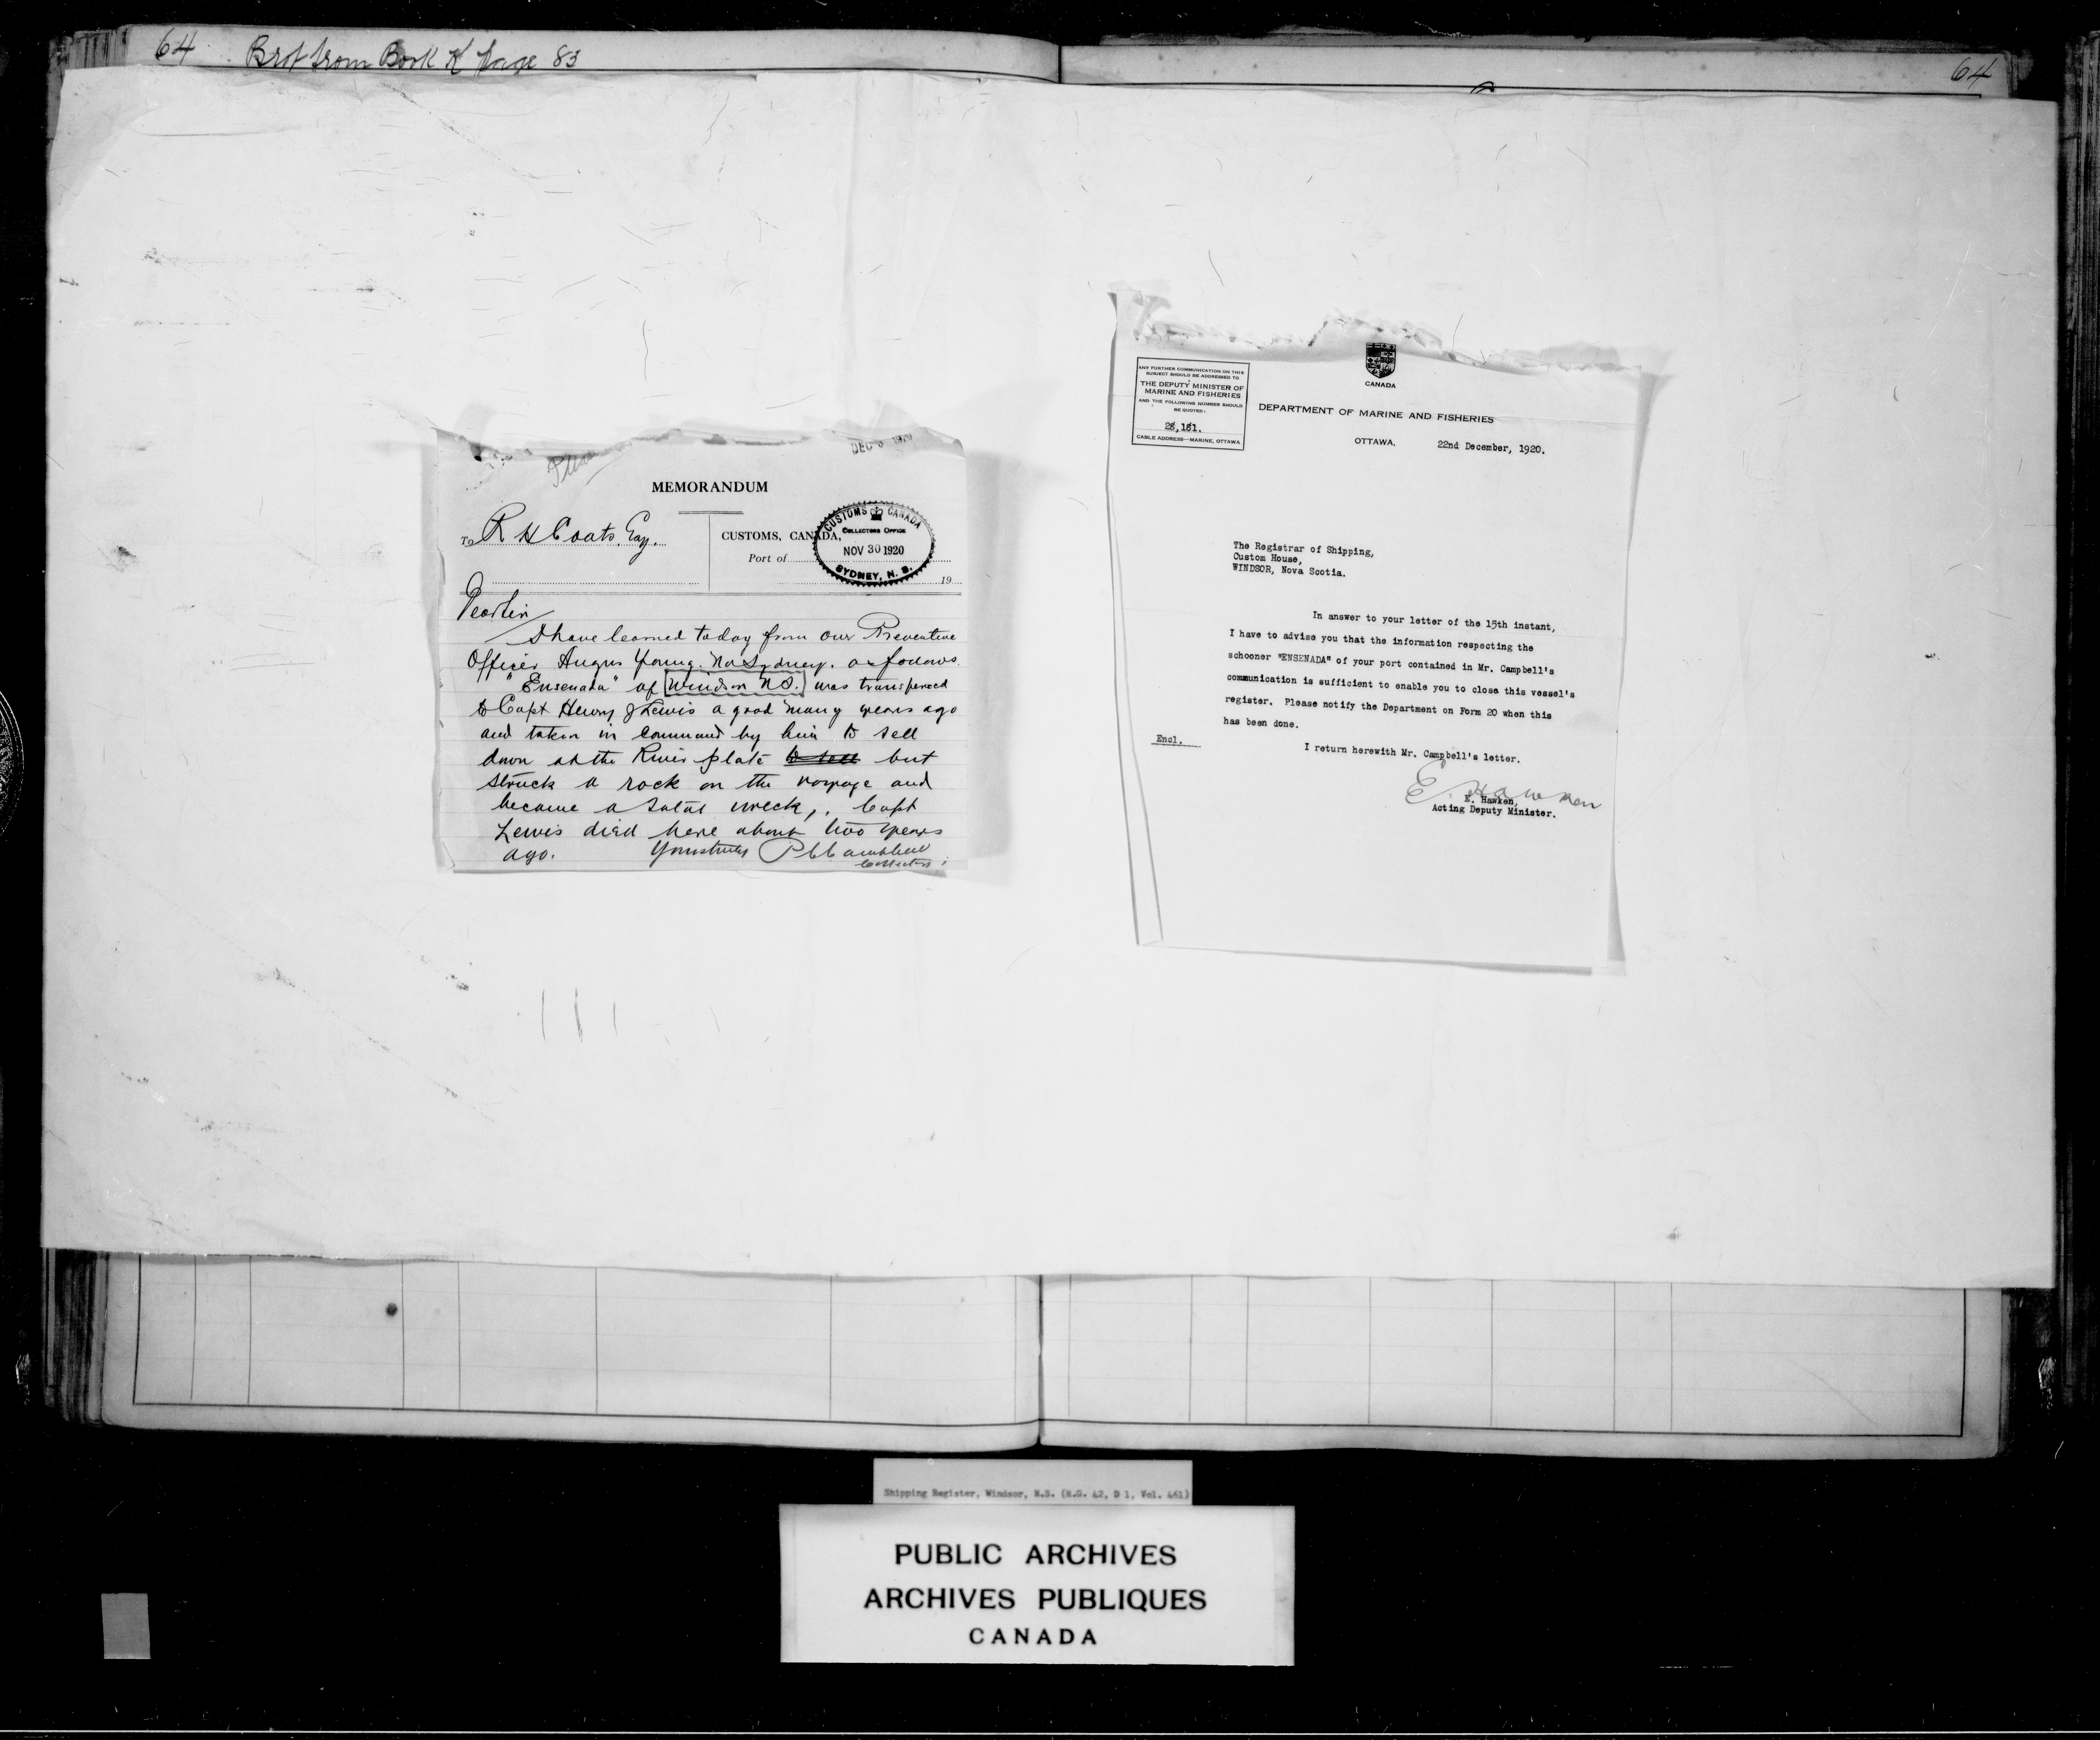 64 Brot from Book K page 83
64
DEC 1920
MEMORANDUM
To R H Coats, Esq.
CUSTOMS, CANADA,
Port of
19
CUSTOMS CANADA
COLLECTORS OFFICE
NOV 30 1920
SYDNEY, N. S.
Dear Sir
I have learned today from our Preventive
Officer Angus Young. No Sydney. as follows.
"Ensenada" of Windsor N.S. was transferred
to Capt Henry J Lewis a good many years ago
and taken in command by him to sell
down at the River plate to sell but
struck a rock on the voyage and
became a total wreck,. Capt
Lewis died here about two years
ago. Yours truly P C Campbell
Collector
ANY FURTHER COMMUNICATION ON THIS
SUBJECT SHOULD BE ADDRESSED TO
THE DEPUTY MINISTER OF
MARINE AND FISHERIES
AND THE FOLLOWING NUMBER SHOULD
BE QUOTED:
28,181.
CABLE ADDRESS—MARINE, OTTAWA
CANADA
DEPARTMENT OF MARINE AND FISHERIES
OTTAWA, 22nd December, 1920.
The Registrar of Shipping,
Custom House,
WINDSOR, Nova Scotia.
In answer to your letter of the 15th instant,
I have to advise you that the information respecting the
schooner "ENSENADA" of your port contained in Mr. Campbell's
communication is sufficient to enable you to close this vessel's
register. Please notify the Department on Form 20 when this
has been done.
Encl.
I return herewith Mr. Campbell's letter.
E. Hawken
E. Hawken,
Acting Deputy Minister.
Shipping Register, Windsor, N.S. (R.G. 42, D 1, Vol. 461)
PUBLIC ARCHIVES
ARCHIVES PUBLIQUES
CANADA